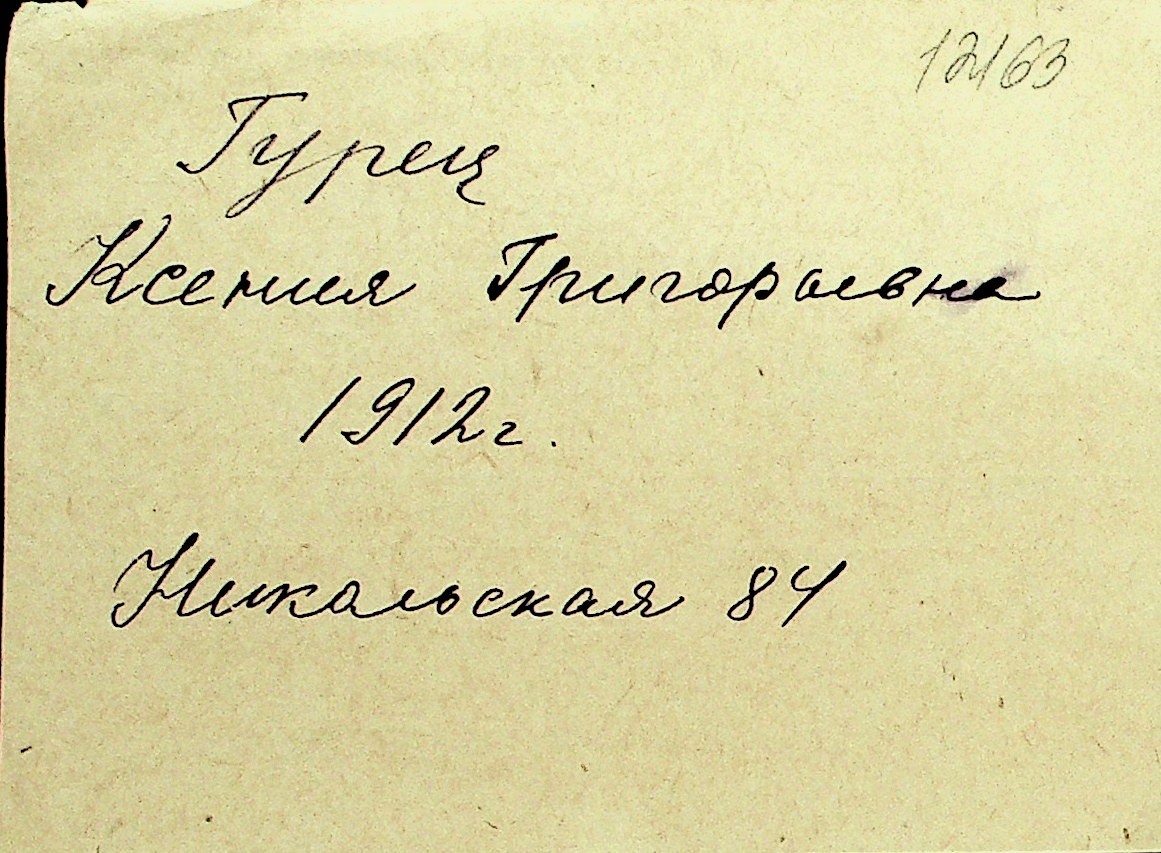 12163
Гурец
Ксения Григорьевна
1912г.
Никольская 84